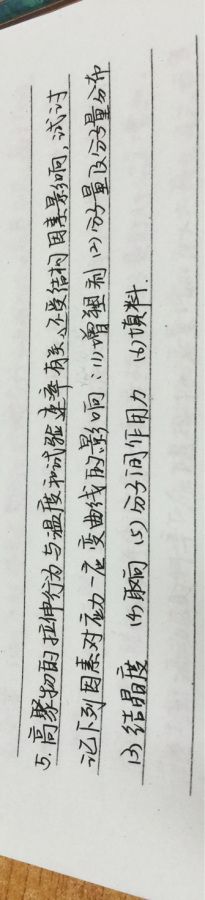 5. 高聚物的拉伸行为与温度和试验速率有关,还受结构因素影响,试讨
论下列因素对应力-应变曲线的影响:(1)增塑剂 (2)分子量及分子量分布
(3)结晶度 (4)取向 (5)分子间作用力 (6)填料.